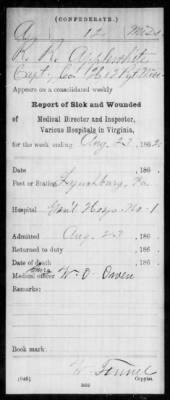 (CONFEDERATE.)
A 12 Miss.
R. R. Applewhite
Capt, Co. H 12 Rgt Miss
Appears on a consolidated weekly
Report of Sick and Wounded
of Medical Director and Inspector,
Various Hospitals in Virginia,
for the week ending Aug 23, 1862.
Date , 186 .
Post or Station Lynchburg, Va
Hospital Gen'l Hosp. No. 1
Admitted Aug 23 , 186 .
Returned to duty , 186 .
Date of death , 186 .
Medical officer W. O. Owen
Remarks:
Book mark:
(646) Copyist.